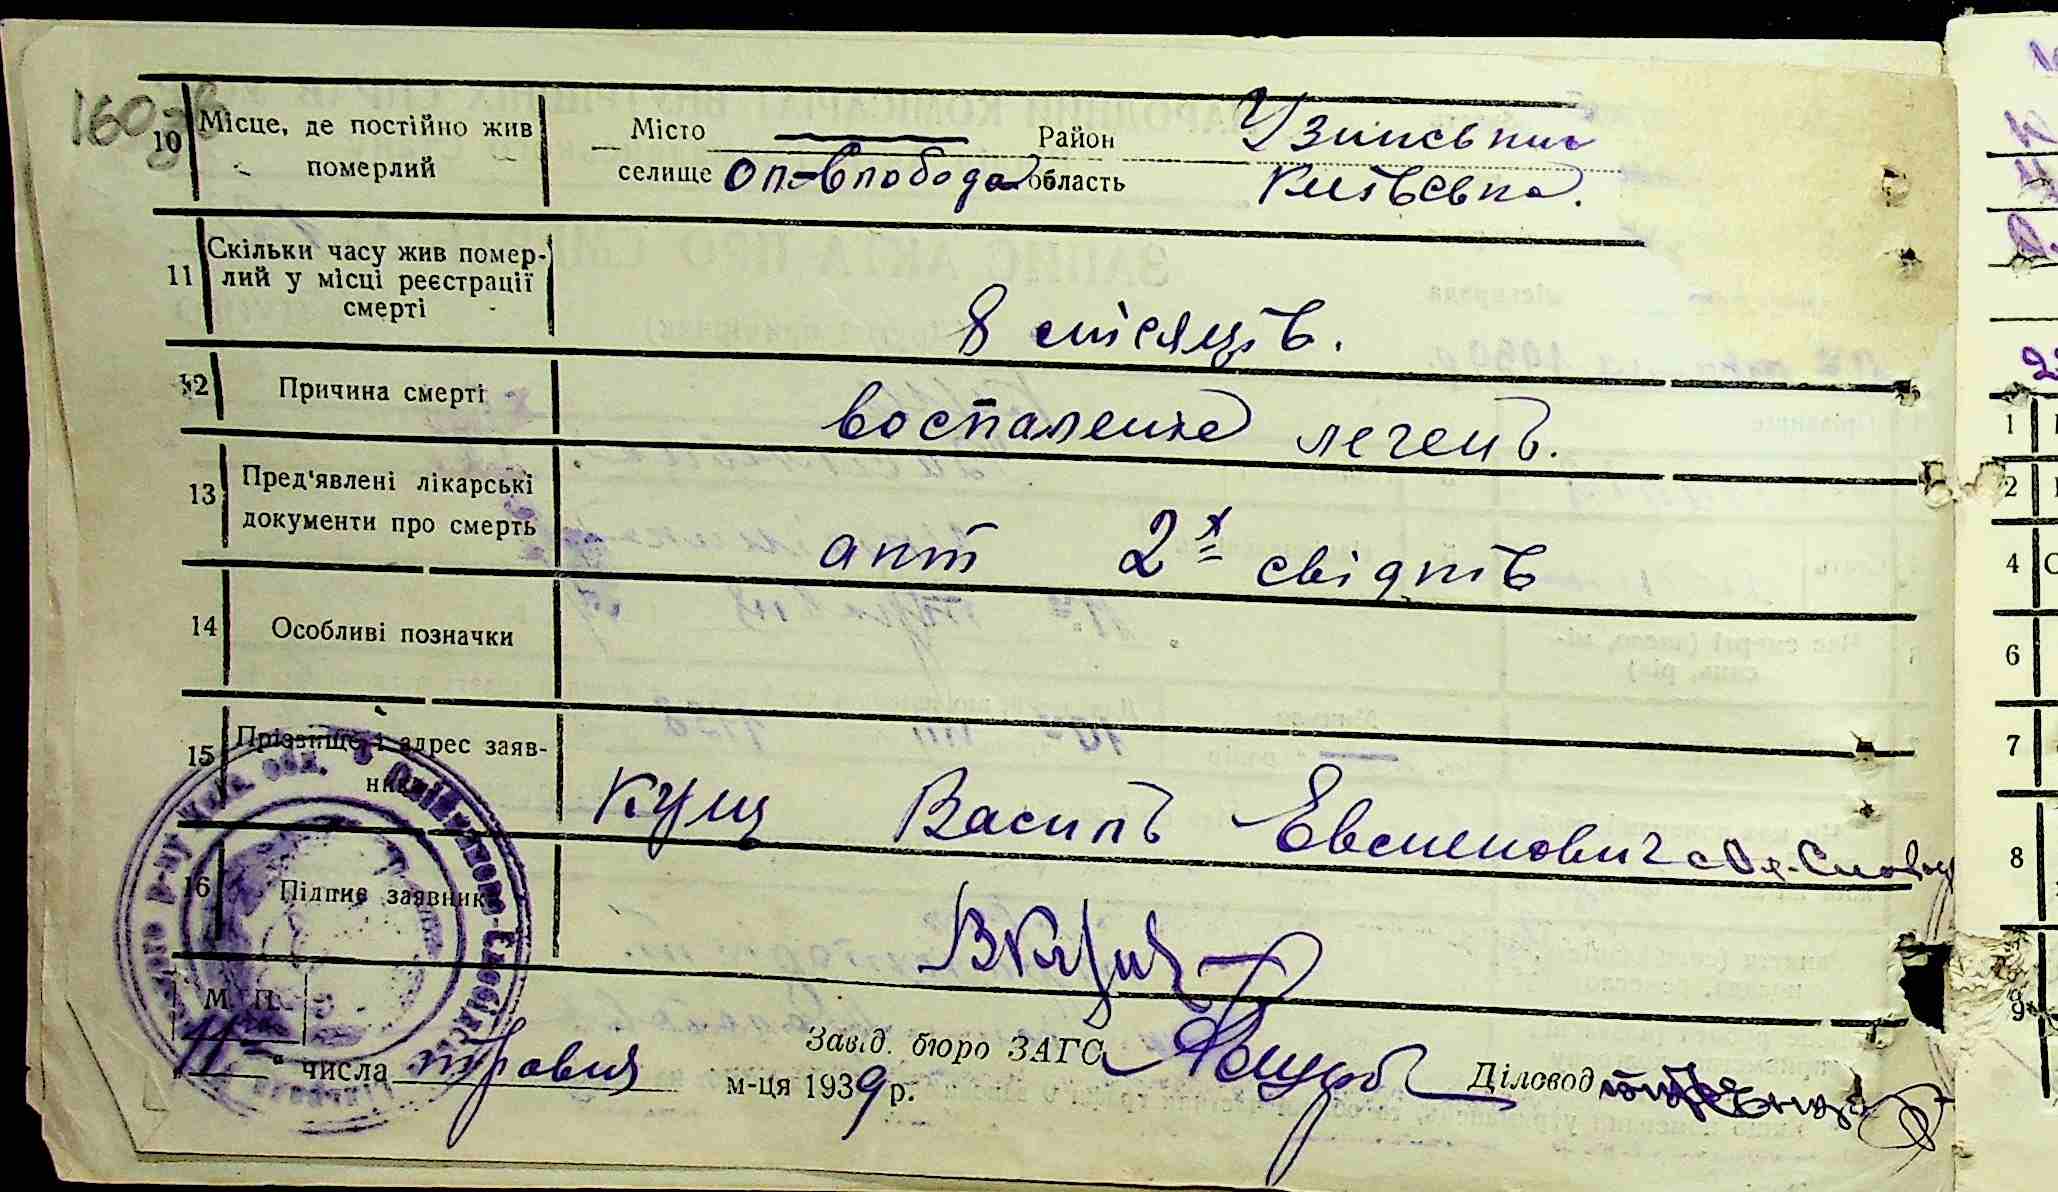 160зв
10 Місце, де постійно жив Місто — Район Узинський
померлий селище Оп-Слобода область Київська.
11 Скільки часу жив помер-
лий у місці реєстрації
смерті 8 місяців.
12 Причина смерті воспаление легень.
13 Пред'явлені лікарські
документи про смерть акт 2х свідків
14 Особливі позначки
15 Прізвище і адрес заяв-
ника Кущ Василь Евсеенович с Оп-Слобод
16 Підпис заявника ВКущ
М. П.
11 " числа травня м-ця 1939 р. Завід. бюро ЗАГС Діловод
1
2
4
6
7
8
9